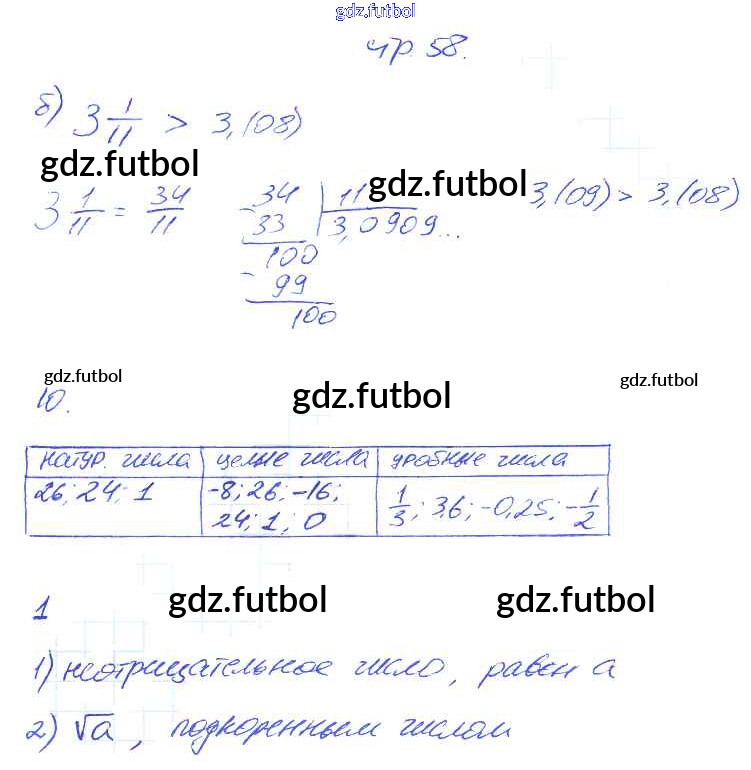 gdz.futbol
стр. 58.
б) 3 1/11 > 3,(08)
gdz.futbol gdz.futbol
3 1/11 = 34/11 34 | 11 3,(09) > 3,(08)
- 33 3,0909...
100
- 99
100
gdz.futbol gdz.futbol gdz.futbol
10.
натур. числа целые числа дробные числа
26; 24; 1 -8; 26; -16; 1/3; 3,6; -0,25; -1/2
24; 1; 0
gdz.futbol gdz.futbol
1
1) неотрицательное число, равен a
2) √a, подкоренным числом